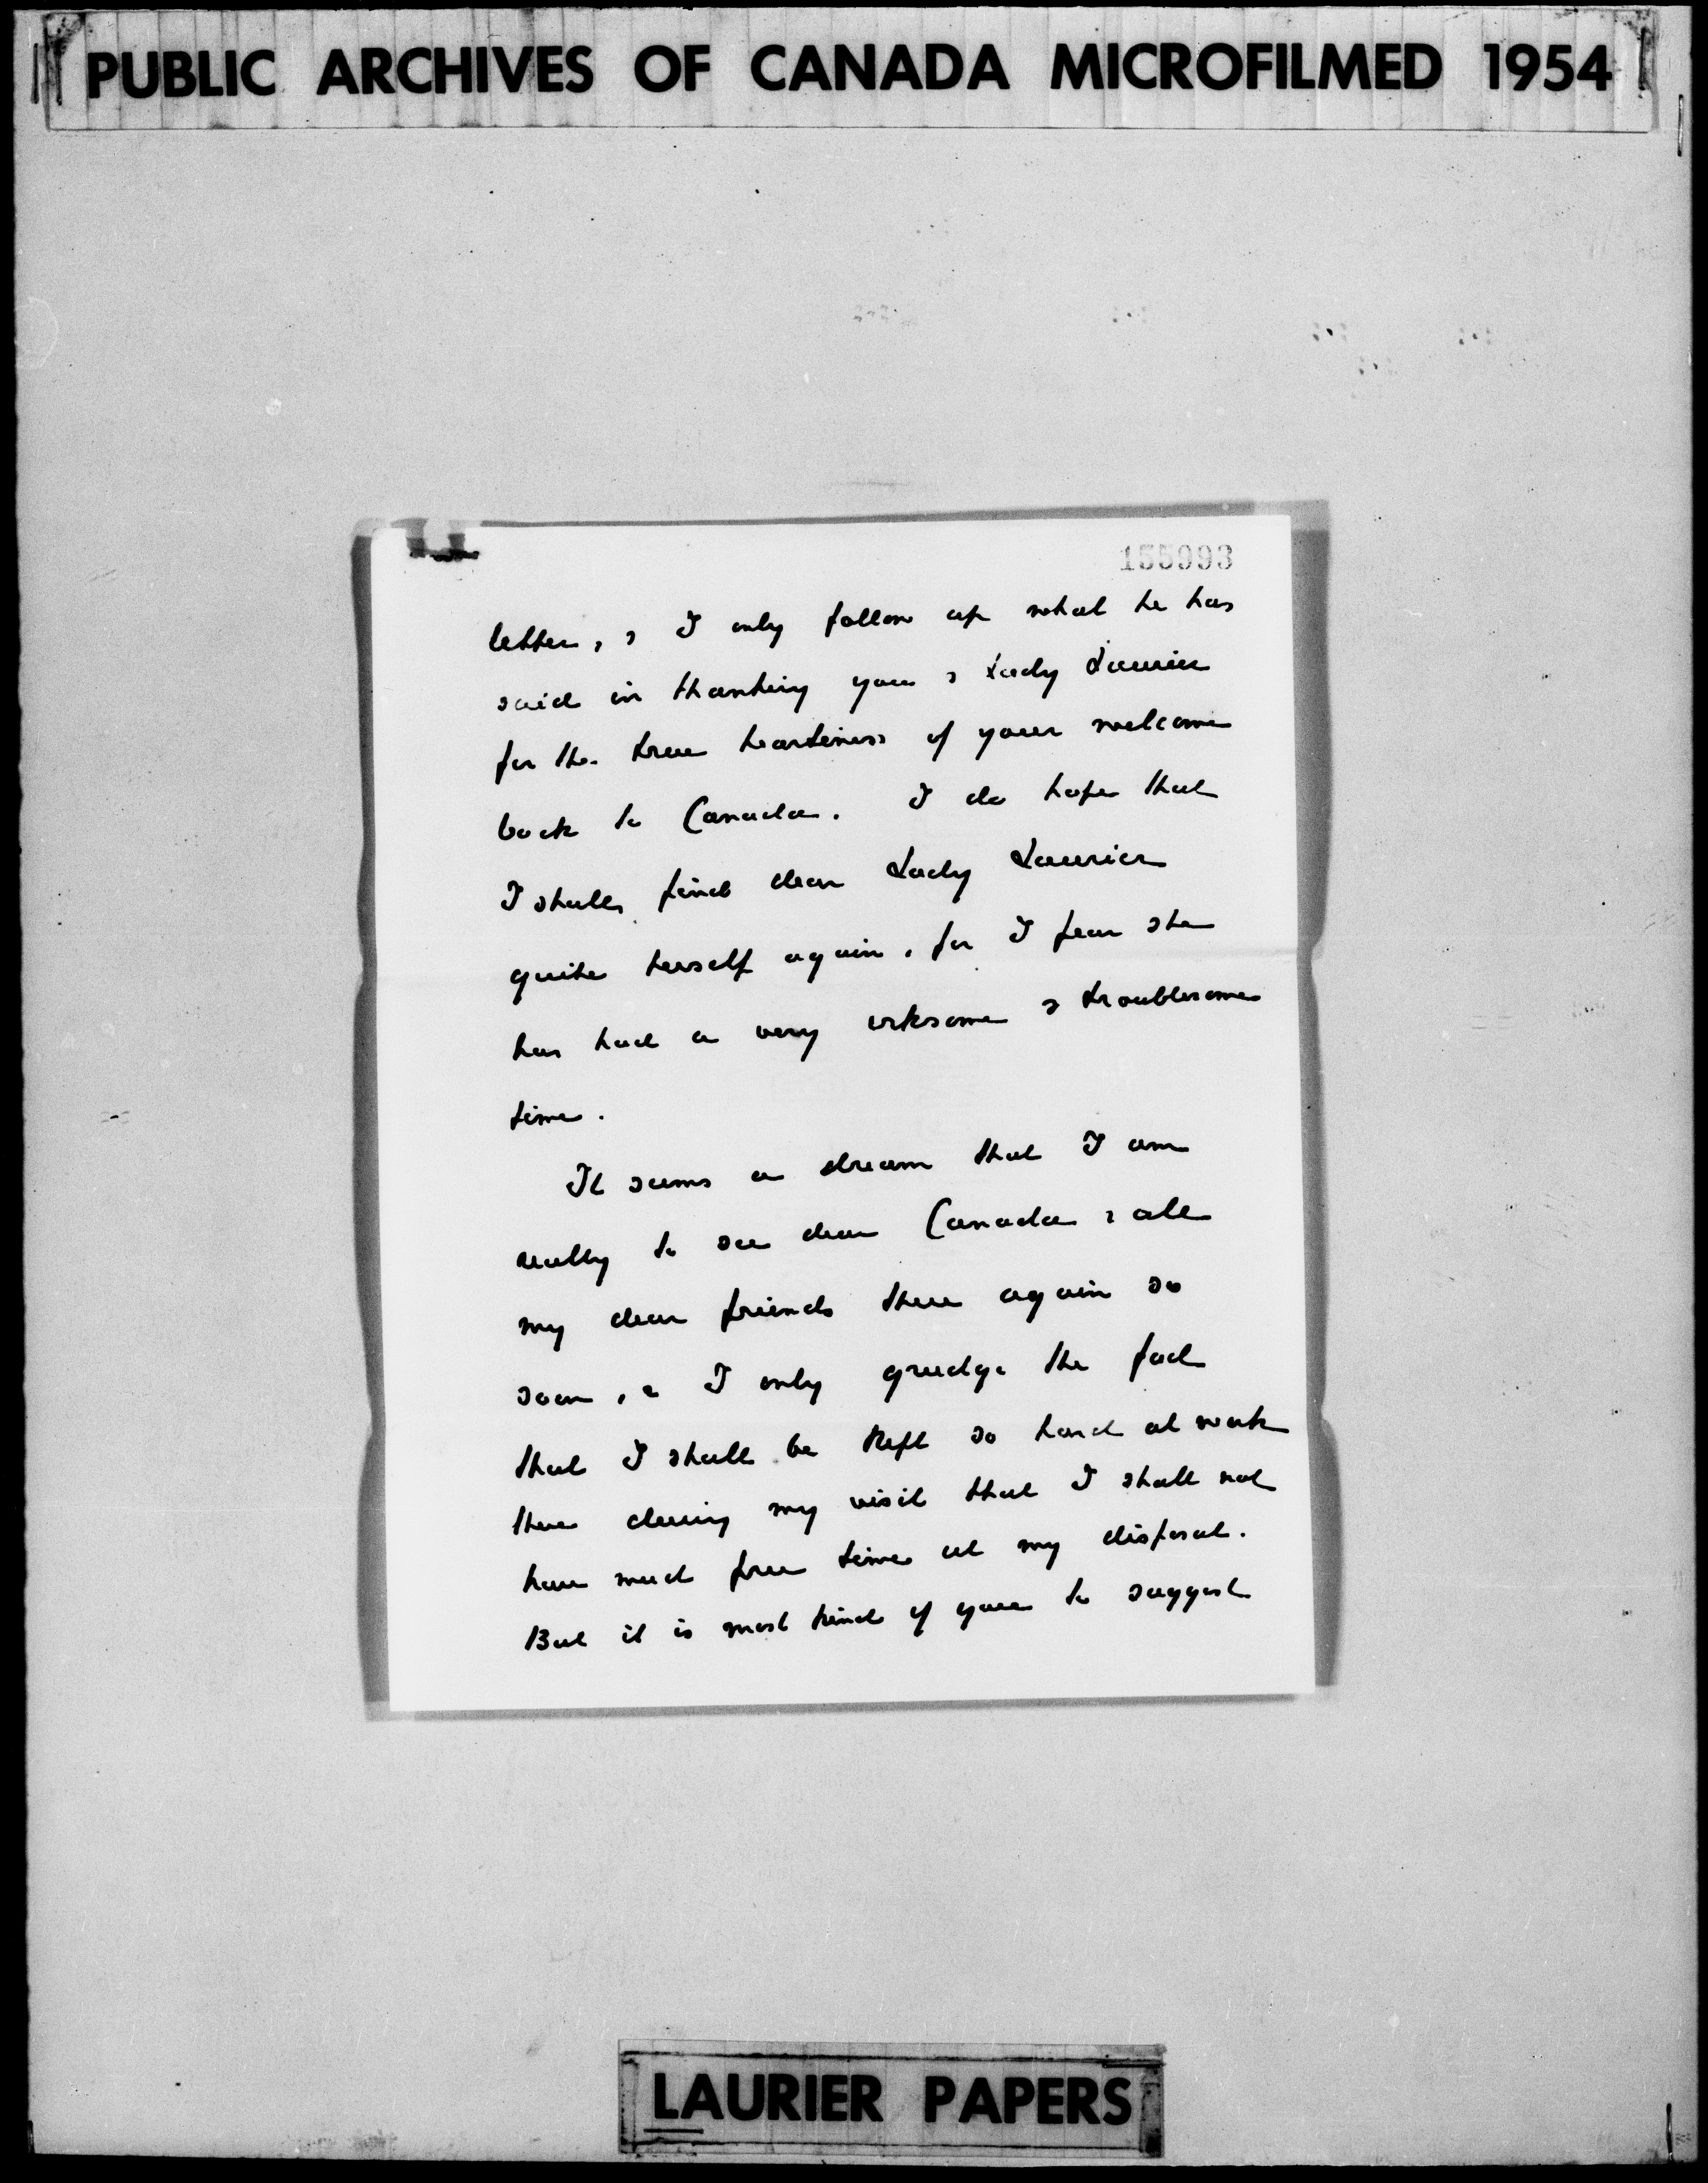 PUBLIC ARCHIVES OF CANADA MICROFILMED 1954
155993
letter, & I only follow up what he has
said in thanking you & Lady Laurier
for the true heartiness of your welcome
back to Canada. I do hope that
I shall find dear Lady Laurier
quite herself again, for I fear she
has had a very irksome & troublesome
time.
It seems a dream that I am
really to see dear Canada & all
my dear friends there again so
soon, & I only grudge the fact
that I shall be kept so hard at work
there during my visit that I shall not
have much free time at my disposal.
But it is most kind of you to suggest
LAURIER PAPERS